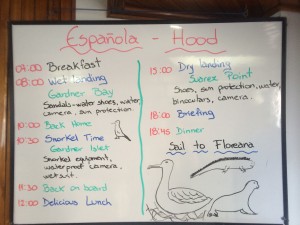 Española - Hood
07:00 Breakfast
08:00 Wet landing
Gardner Bay
Sandals-water shoes, water,
camera, sun protection.
10:00 Back Home
10:30 Snorkel Time
Gardner Islet
Snorkel equipment,
waterproof camera,
wetsuit.
11:30 Back on board
12:00 Delicious Lunch
15:00 Dry landing
Suarez Point
Shoes, sun protection, water,
binoculars, camera.
18:00 Briefing
18:45 Dinner
Sail to Floreana